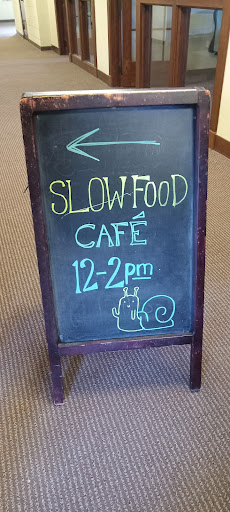 SLOW FOOD
CAFÉ
12-2pm